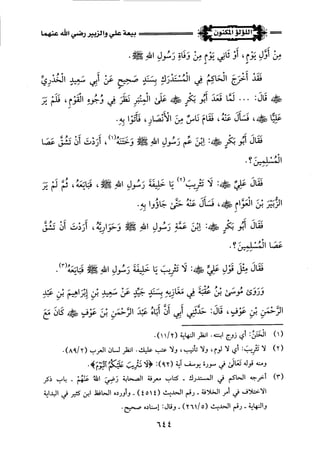 اللؤلؤ المكنون بيعة علي والزبير رضي الله عنهما
مِنْ أَوَّلِ يَوْمٍ، أَوْ ثَانِي يَوْمٍ مِنْ وَفَاةِ رَسُولِ اللهِ ﷺ.
فَقَدْ أَخْرَجَ الحَاكِمُ فِي المُسْتَدْرَكِ بِسَنَدٍ صَحِيحٍ عَنْ أَبِي سَعِيدٍ الخُدْرِيِّ
قَالَ: ... لَمَّا قَعَدَ أَبُو بَكْرٍ عَلَى المِنْبَرِ نَظَرَ فِي وُجُوهِ القَوْمِ، فَلَمْ يَرَ
عَلِيًّا، فَسَأَلَ عَنْهُ، فَقَامَ نَاسٌ مِنَ الأَنْصَارِ، فَأَتَوْا بِهِ.
فَقَالَ أَبُو بَكْرٍ: ابْنُ عَمِّ رَسُولِ اللهِ ﷺ وَخَتَنُهُ(١)، أَرَدْتَ أَنْ تَشُقَّ عَصَا
المُسْلِمِينَ؟.
فَقَالَ عَلِيٌّ: لَا تَثْرِيبَ(٢) يَا خَلِيفَةَ رَسُولِ اللهِ ﷺ، فَبَايَعَهُ، ثُمَّ لَمْ يَرَ
الزُّبَيْرَ بْنَ العَوَّامِ، فَسَأَلَ عَنْهُ حَتَّى جَاؤُوا بِهِ.
فَقَالَ أَبُو بَكْرٍ: ابْنُ عَمَّةِ رَسُولِ اللهِ ﷺ وَحَوَارِيُّهُ، أَرَدْتَ أَنْ تَشُقَّ
عَصَا المُسْلِمِينَ؟.
فَقَالَ مِثْلَ قَوْلِ عَلِيٍّ: لَا تَثْرِيبَ يَا خَلِيفَةَ رَسُولِ اللهِ ﷺ، فَبَايَعَاهُ(٣).
وَرَوَى مُوسَى بْنُ عُقْبَةَ فِي مَغَازِيهِ بِسَنَدٍ جَيِّدٍ عَنْ سَعْدِ بْنِ إِبْرَاهِيمَ بْنِ عَبْدِ
الرَّحْمَنِ بْنِ عَوْفٍ، قَالَ: حَدَّثَنِي أَبِي أَنَّ أَبَاهُ عَبْدَ الرَّحْمَنِ بْنَ عَوْفٍ كَانَ مَعَ
(١) الخَتَنُ: أي زوج ابنته. انظر النهاية (١١/٢).
(٢) لا تثريب: أي لا لوم، ولا تأنيب، ولا عتب عليك. انظر لسان العرب (٨٩/٢).
ومنه قوله تعالى في سورة يوسف آية (٩٢): ﴿لَا تَثْرِيبَ عَلَيْكُمُ الْيَوْمَ﴾.
(٣) أخرجه الحاكم في المستدرك - كتاب معرفة الصحابة رضي الله عنهم - باب ذكر
الاختلاف في أمر الخلافة - رقم الحديث (٤٥١٤) - وأورده الحافظ ابن كثير في البداية
والنهاية - رقم الحديث (٢٦١/٥) - وقال: إسناده صحيح.
٦٤٤